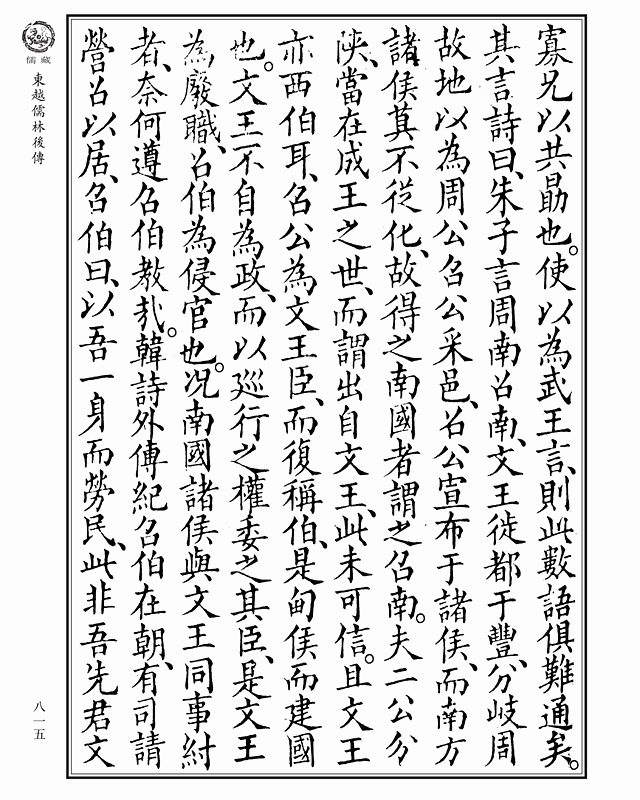 寡兄以共勗也。使以為武王言、則此數語俱難通矣。
其言詩曰、朱子言周南召南、文王徙都于豐、分岐周
故地以為周公召公采邑、召公宣布于諸侯、而南方
諸侯莫不從化、故得之南國者謂之召南。夫二公分
陝、當在成王之世、而謂出自文王、此未可信。且文王
亦西伯耳、召公為文王臣、而復稱伯、是甸侯而建國
也。文王不自為政、而以巡行之權委之其臣、是文王
為廢職、召伯為侵官也。况南國諸侯與文王同事紂
者、奈何遵召伯教哉。韓詩外傳紀召伯在朝、有司請
營召以居、召伯曰、以吾一身而勞民、此非吾先君文
儒藏
東越儒林後傳
八一五